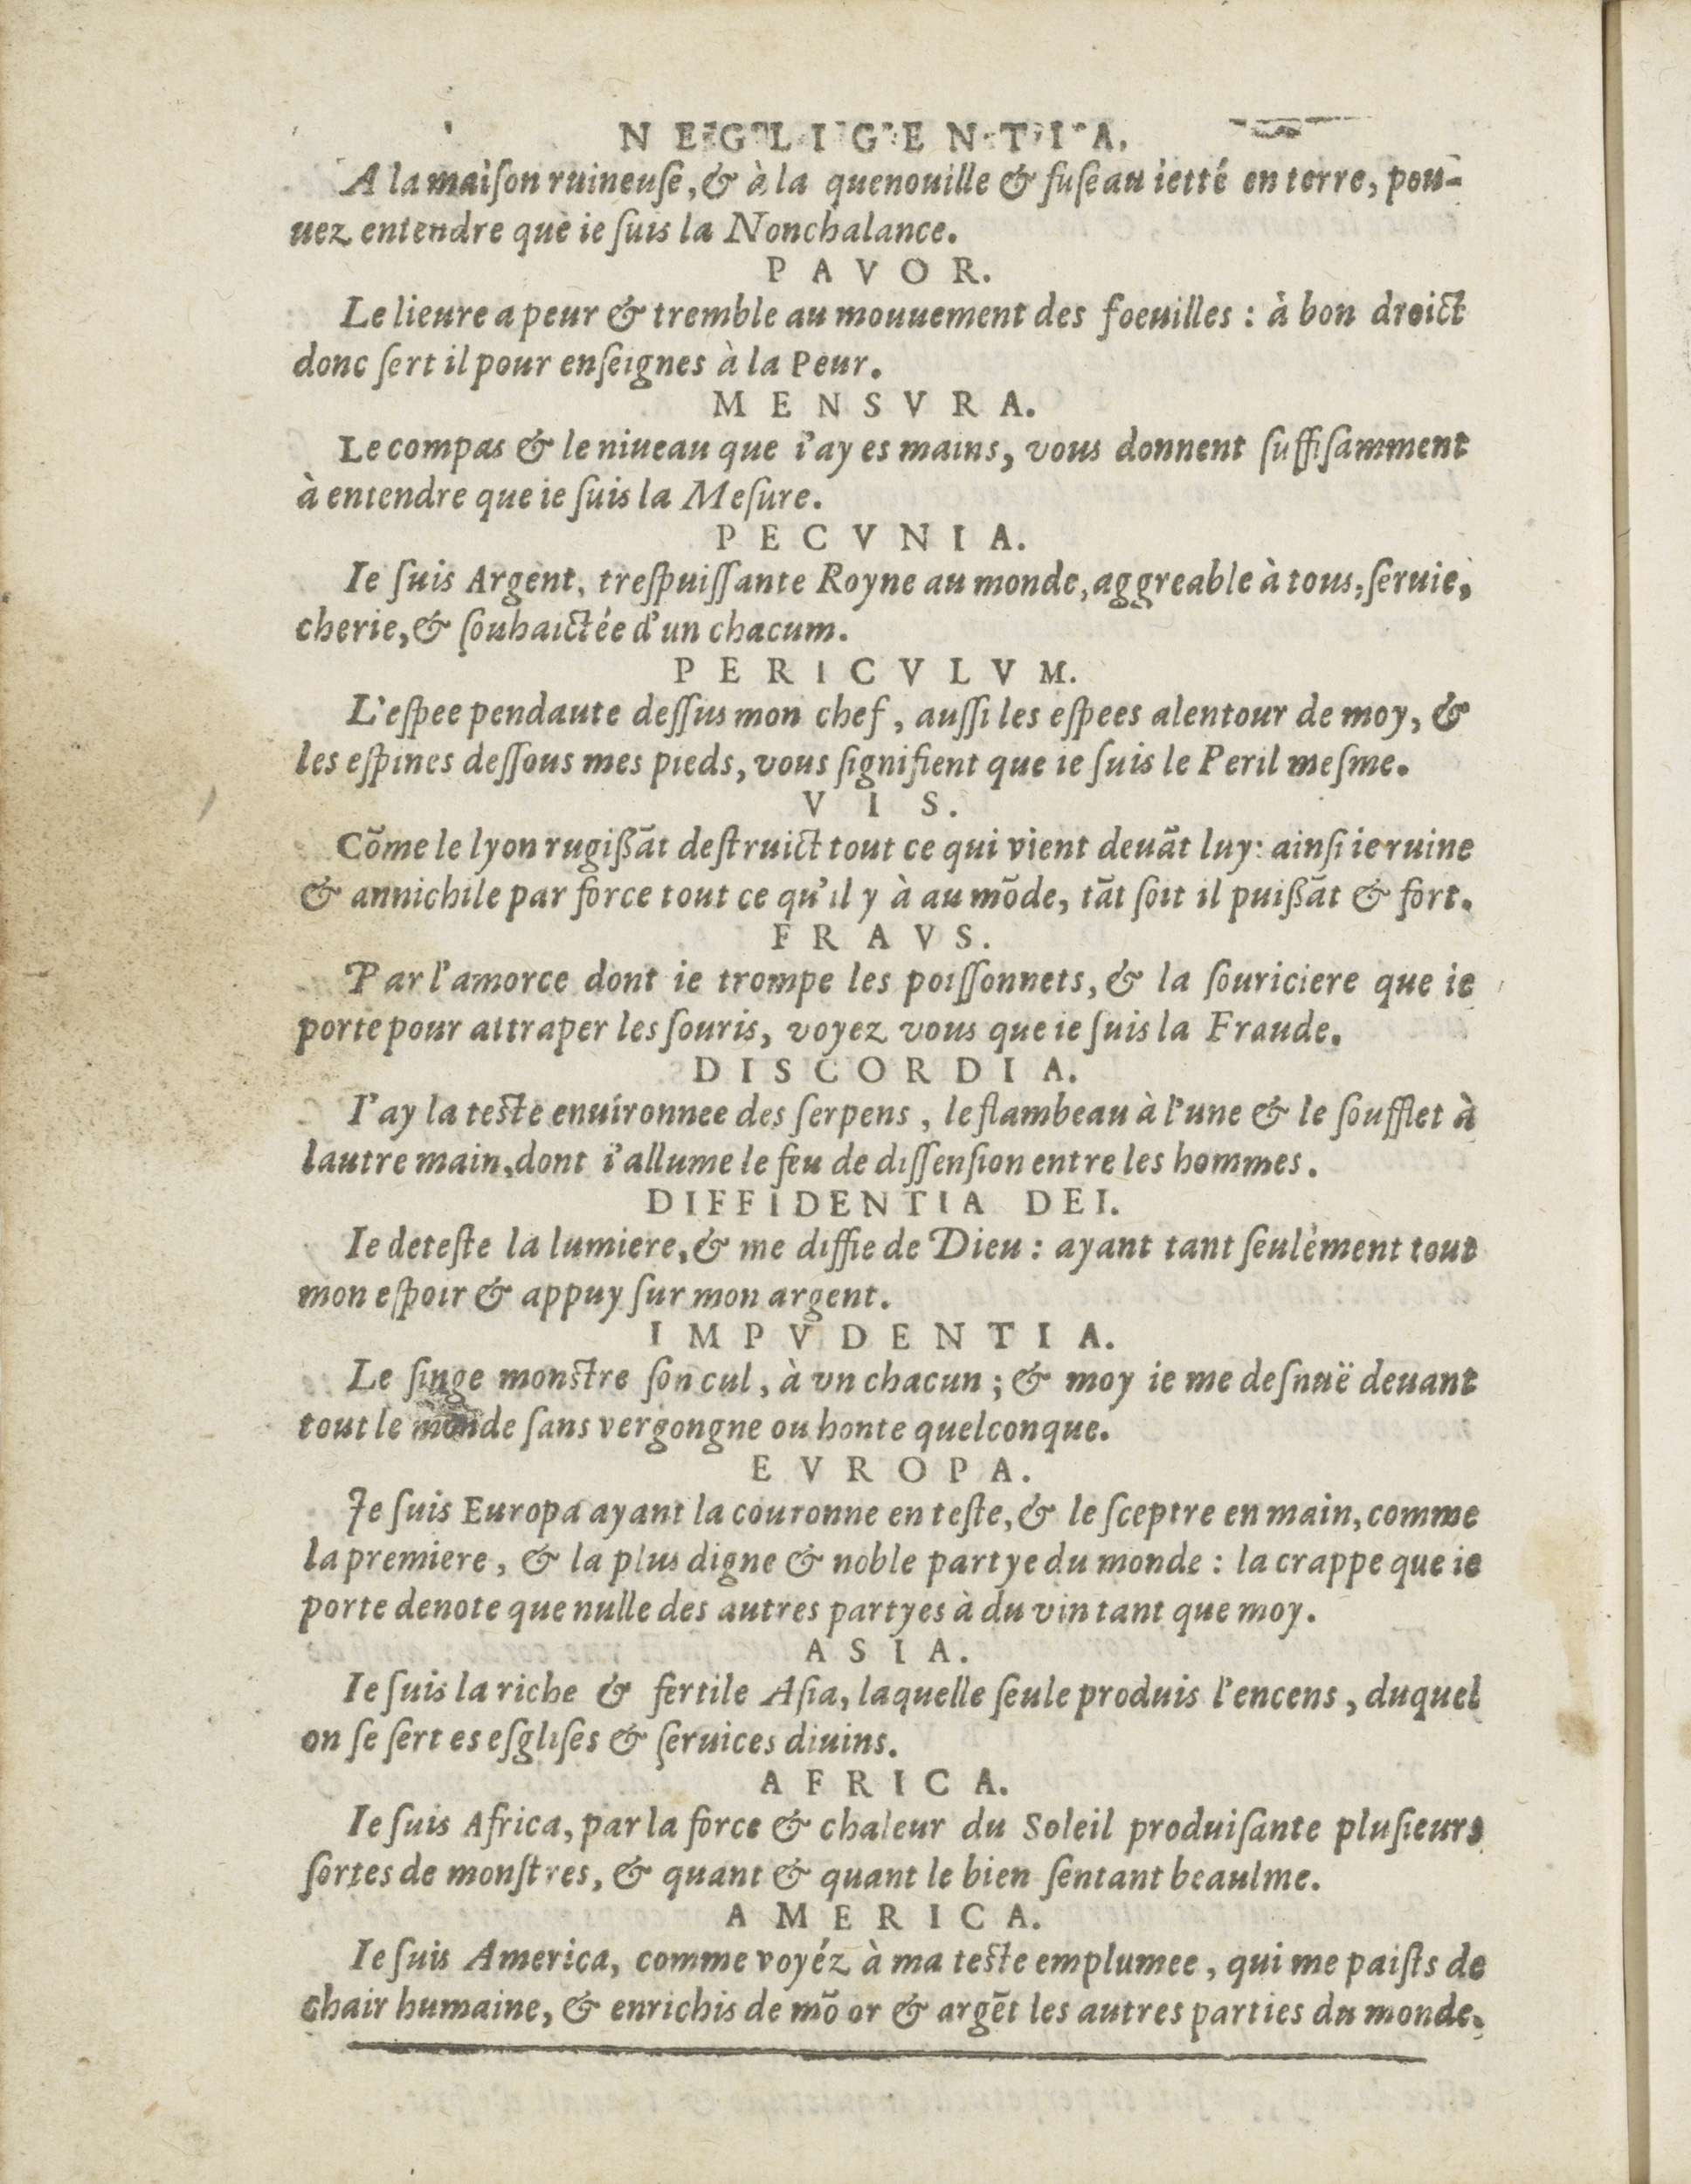 NEGLIGENTIA.
A la maiſon ruineuſe, & à la quenouille & fuſeau ietté en terre, pou-
uez entendre que ie ſuis la Nonchalance.
PAVOR.
Le lieure a peur & tremble au mouuement des foeuilles : à bon droict
donc ſert il pour enſeignes à la Peur.
MENSVRA.
Le compas & le niueau que i'ay es mains, vous donnent ſuffiſamment
à entendre que ie ſuis la Meſure.
PECVNIA.
Ie ſuis Argent, treſpuiſſante Royne au monde, aggreable à tous, ſeruie,
cherie, & ſouhaictée d'un chacum.
PERICVLVM.
L'eſpee pendaute deſſus mon chef, auſſi les eſpees alentour de moy, &
les eſpines deſſous mes pieds, vous ſignifient que ie ſuis le Peril meſme.
VIS.
Cõme le lyon rugißãt deſtruict tout ce qui vient deuãt luy: ainſi ie ruine
& annichile par force tout ce qu'il y à au mõde, tãt ſoit il puißãt & fort.
FRAVS.
Par l'amorce dont ie trompe les poiſſonnets, & la ſouriciere que ie
porte pour attraper les ſouris, voyez vous que ie ſuis la Fraude.
DISCORDIA.
I'ay la teſte enuironnee des ſerpens, le flambeau à l'une & le ſoufflet à
lautre main, dont i'allume le feu de diſſenſion entre les hommes.
DIFFIDENTIA DEI.
Ie deteſte la lumiere, & me diffie de Dieu : ayant tant ſeulèment tout
mon eſpoir & appuy ſur mon argent.
IMPVDENTIA.
Le ſinge monſtre ſon cul, à vn chacun ; & moy ie me deſnuë deuant
tout le monde ſans vergongne ou honte quelconque.
EVROPA.
Je ſuis Europa ayant la couronne en teſte, & le ſceptre en main, comme
la premiere, & la plus digne & noble partye du monde : la crappe que ie
porte denote que nulle des autres partyes à du vin tant que moy.
ASIA.
Ie ſuis la riche & fertile Aſia, laquelle ſeule produis l'encens, duquel
on ſe ſert es eſgliſes & ſeruices diuins.
AFRICA.
Ie ſuis Africa, par la force & chaleur du Soleil produiſante pluſieurs
ſortes de monſtres, & quant & quant le bien ſentant beaulme.
AMERICA.
Ie ſuis America, comme voyéz à ma teſte emplumee, qui me paiſts de
chair humaine, & enrichis de mõ or & argẽt les autres parties du monde.